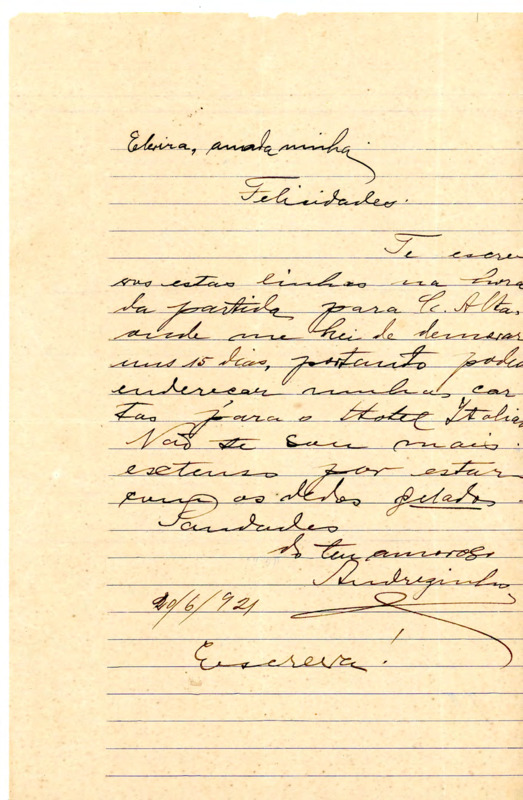 Elvira, amada minha
Felicidades.
Te escre
vos estas linhas na hora
da partida para C. Alta,
onde me hei de demorar
uns 15 dias, portanto podes
endereçar minhas car
tas para o Hotel Italia
Não te sou mais
extenso por estar
com os dedos gelados.
Saudades
do teu amoroso
Andreginho
20/6/921
Escreva!